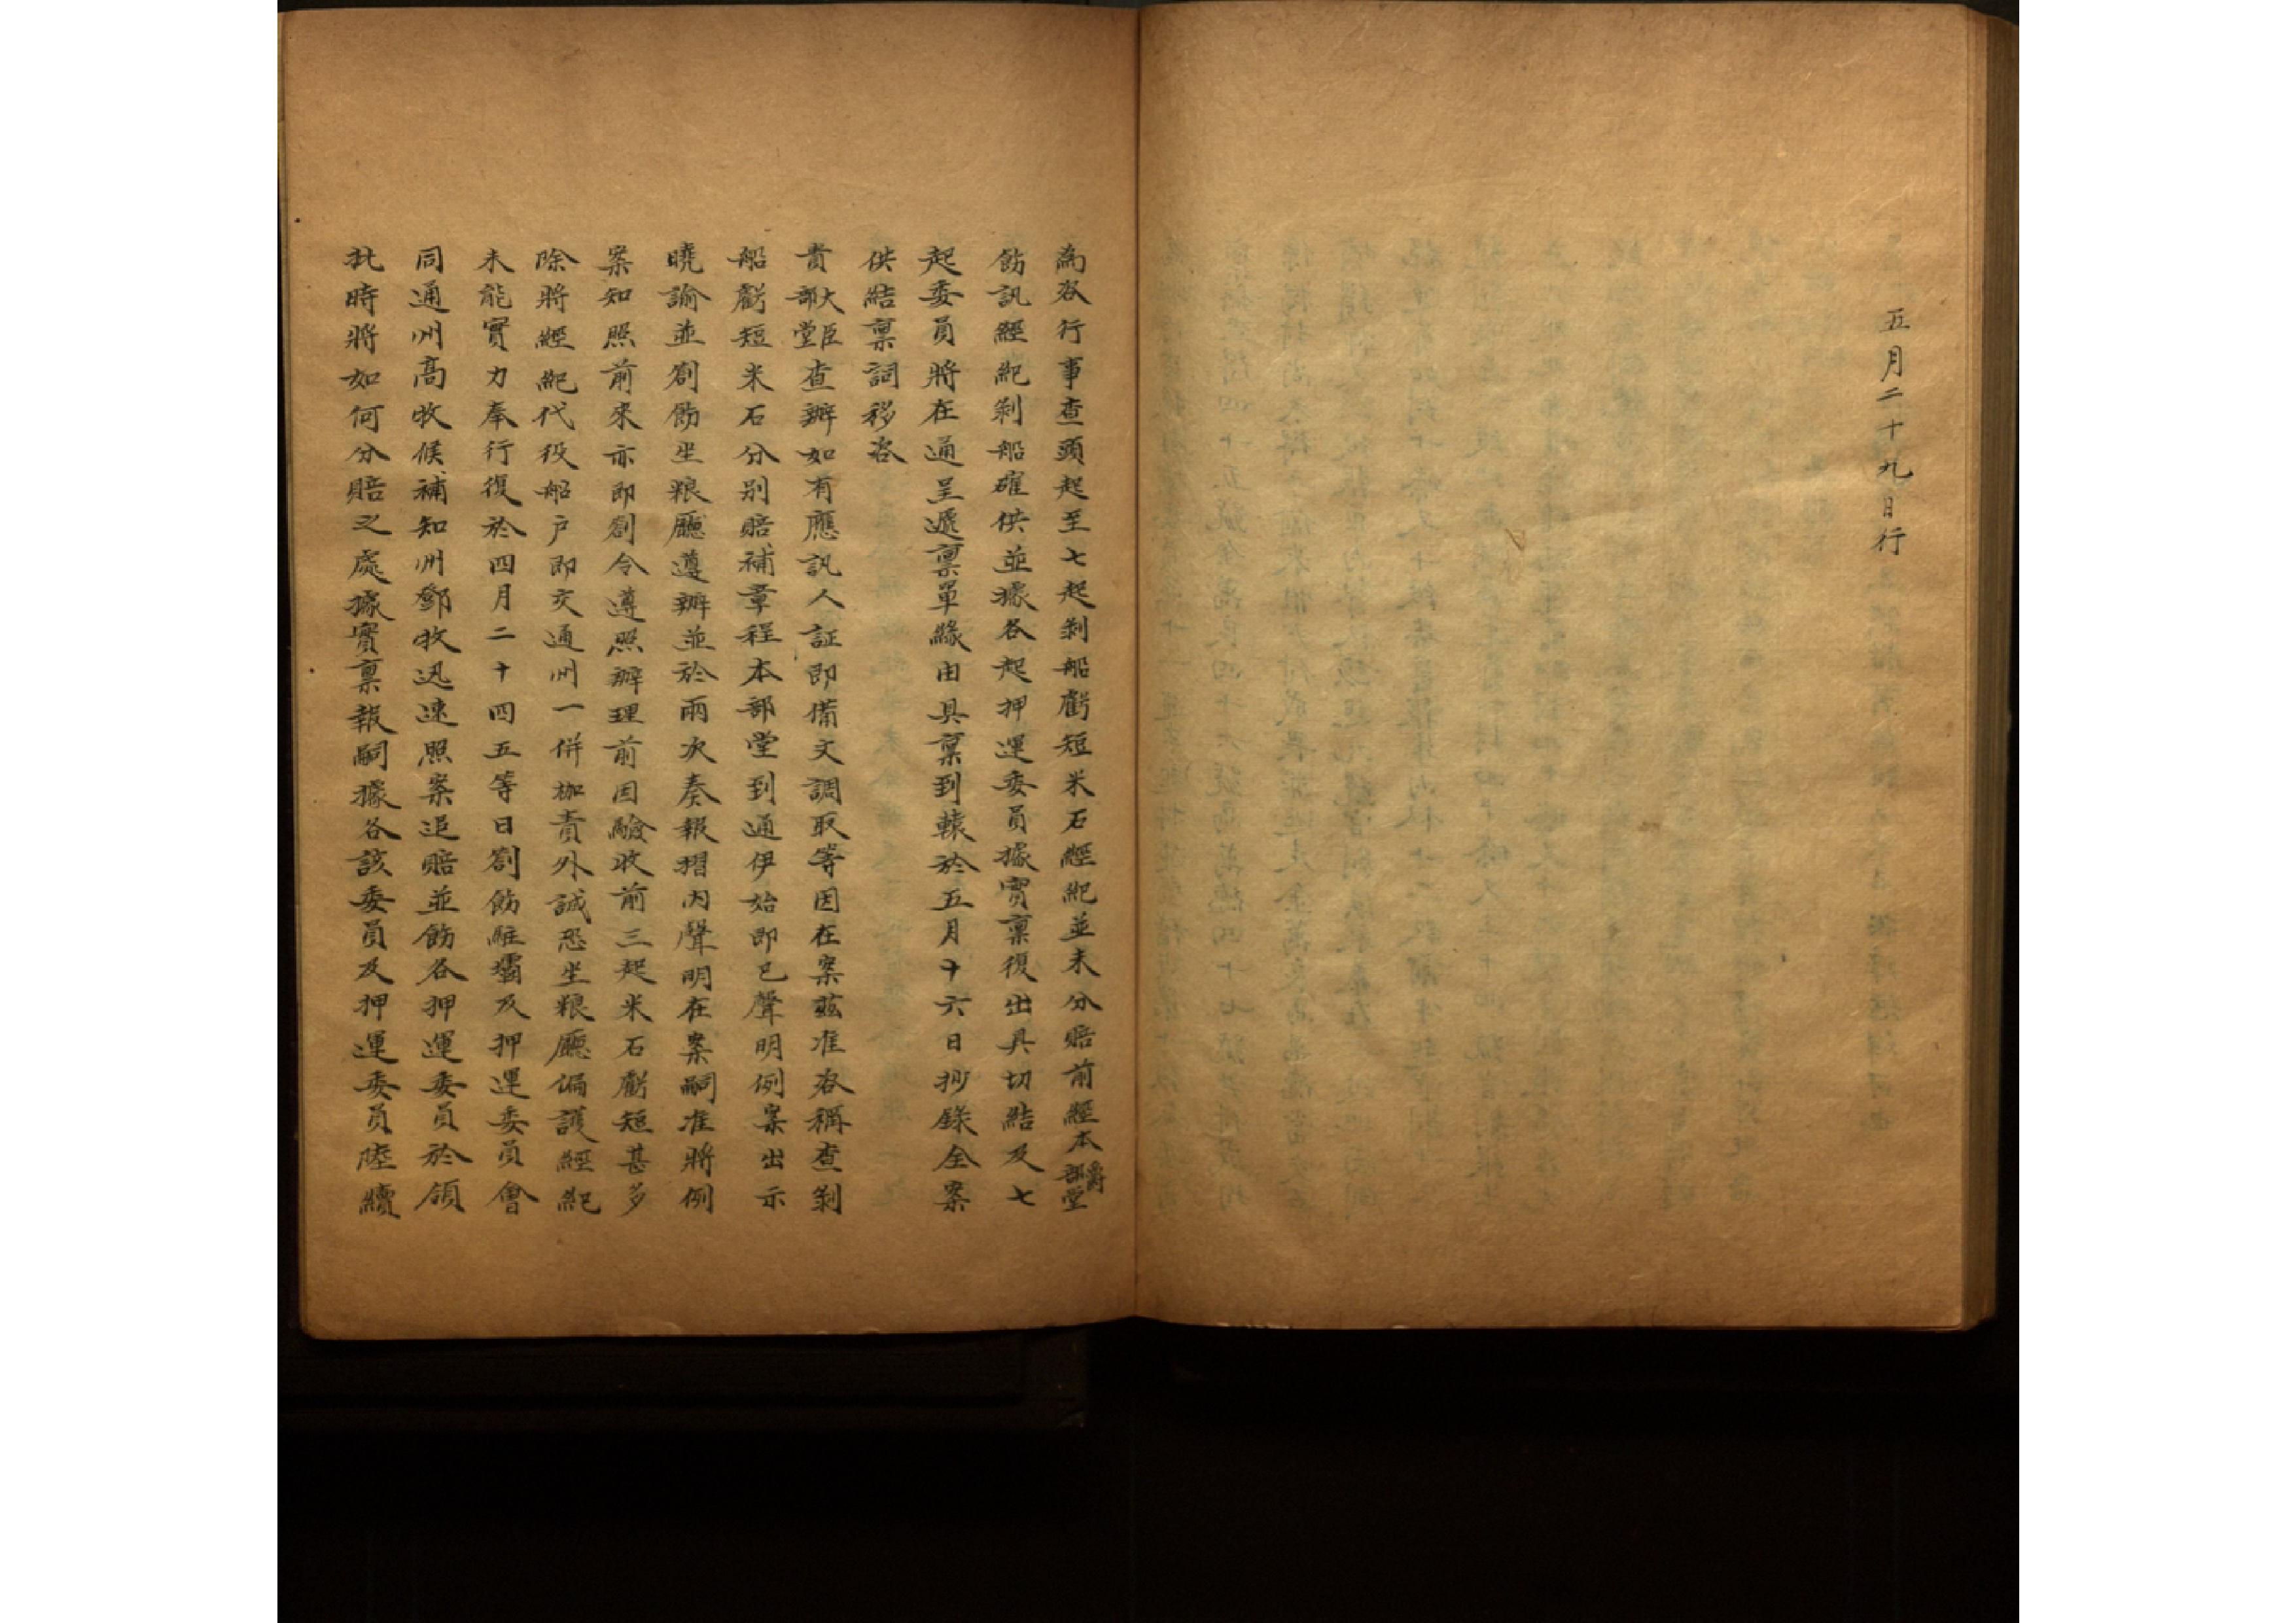 五月二十九日行
為咨行事查頭起至七起剝船虧短米石經紀並未分賠前經本爵部堂
飭訊經紀剝船確供並據各起押運委員據實稟復出具切結及七
起委員將在通呈遞稟單緣由具稟到轅於五月十六日抄錄全案
供結稟詞移咨
貴部大堂臣查辦如有應訊人証即備文調取等因在案茲准咨稱查剝
船虧短米石分別賠補章程本部堂到通伊始即已聲明例案出示
曉諭並劄飭坐粮廳遵辦並於兩次奏報摺內聲明在案嗣准將例
案知照前來亦即劄令遵照辦理前因驗收前三起米石虧短甚多
除將經紀代役船户即交通州一併枷責外誠恐坐粮廳偏護經紀
未能實力奉行復於四月二十四五等日劄飭駐壩及押運委員會
同通州高牧候補知州鄧牧迅速照案追賠並飭各押運委員於領
批時將如何分賠之處據實稟報嗣據各該委員及押運委員陸續